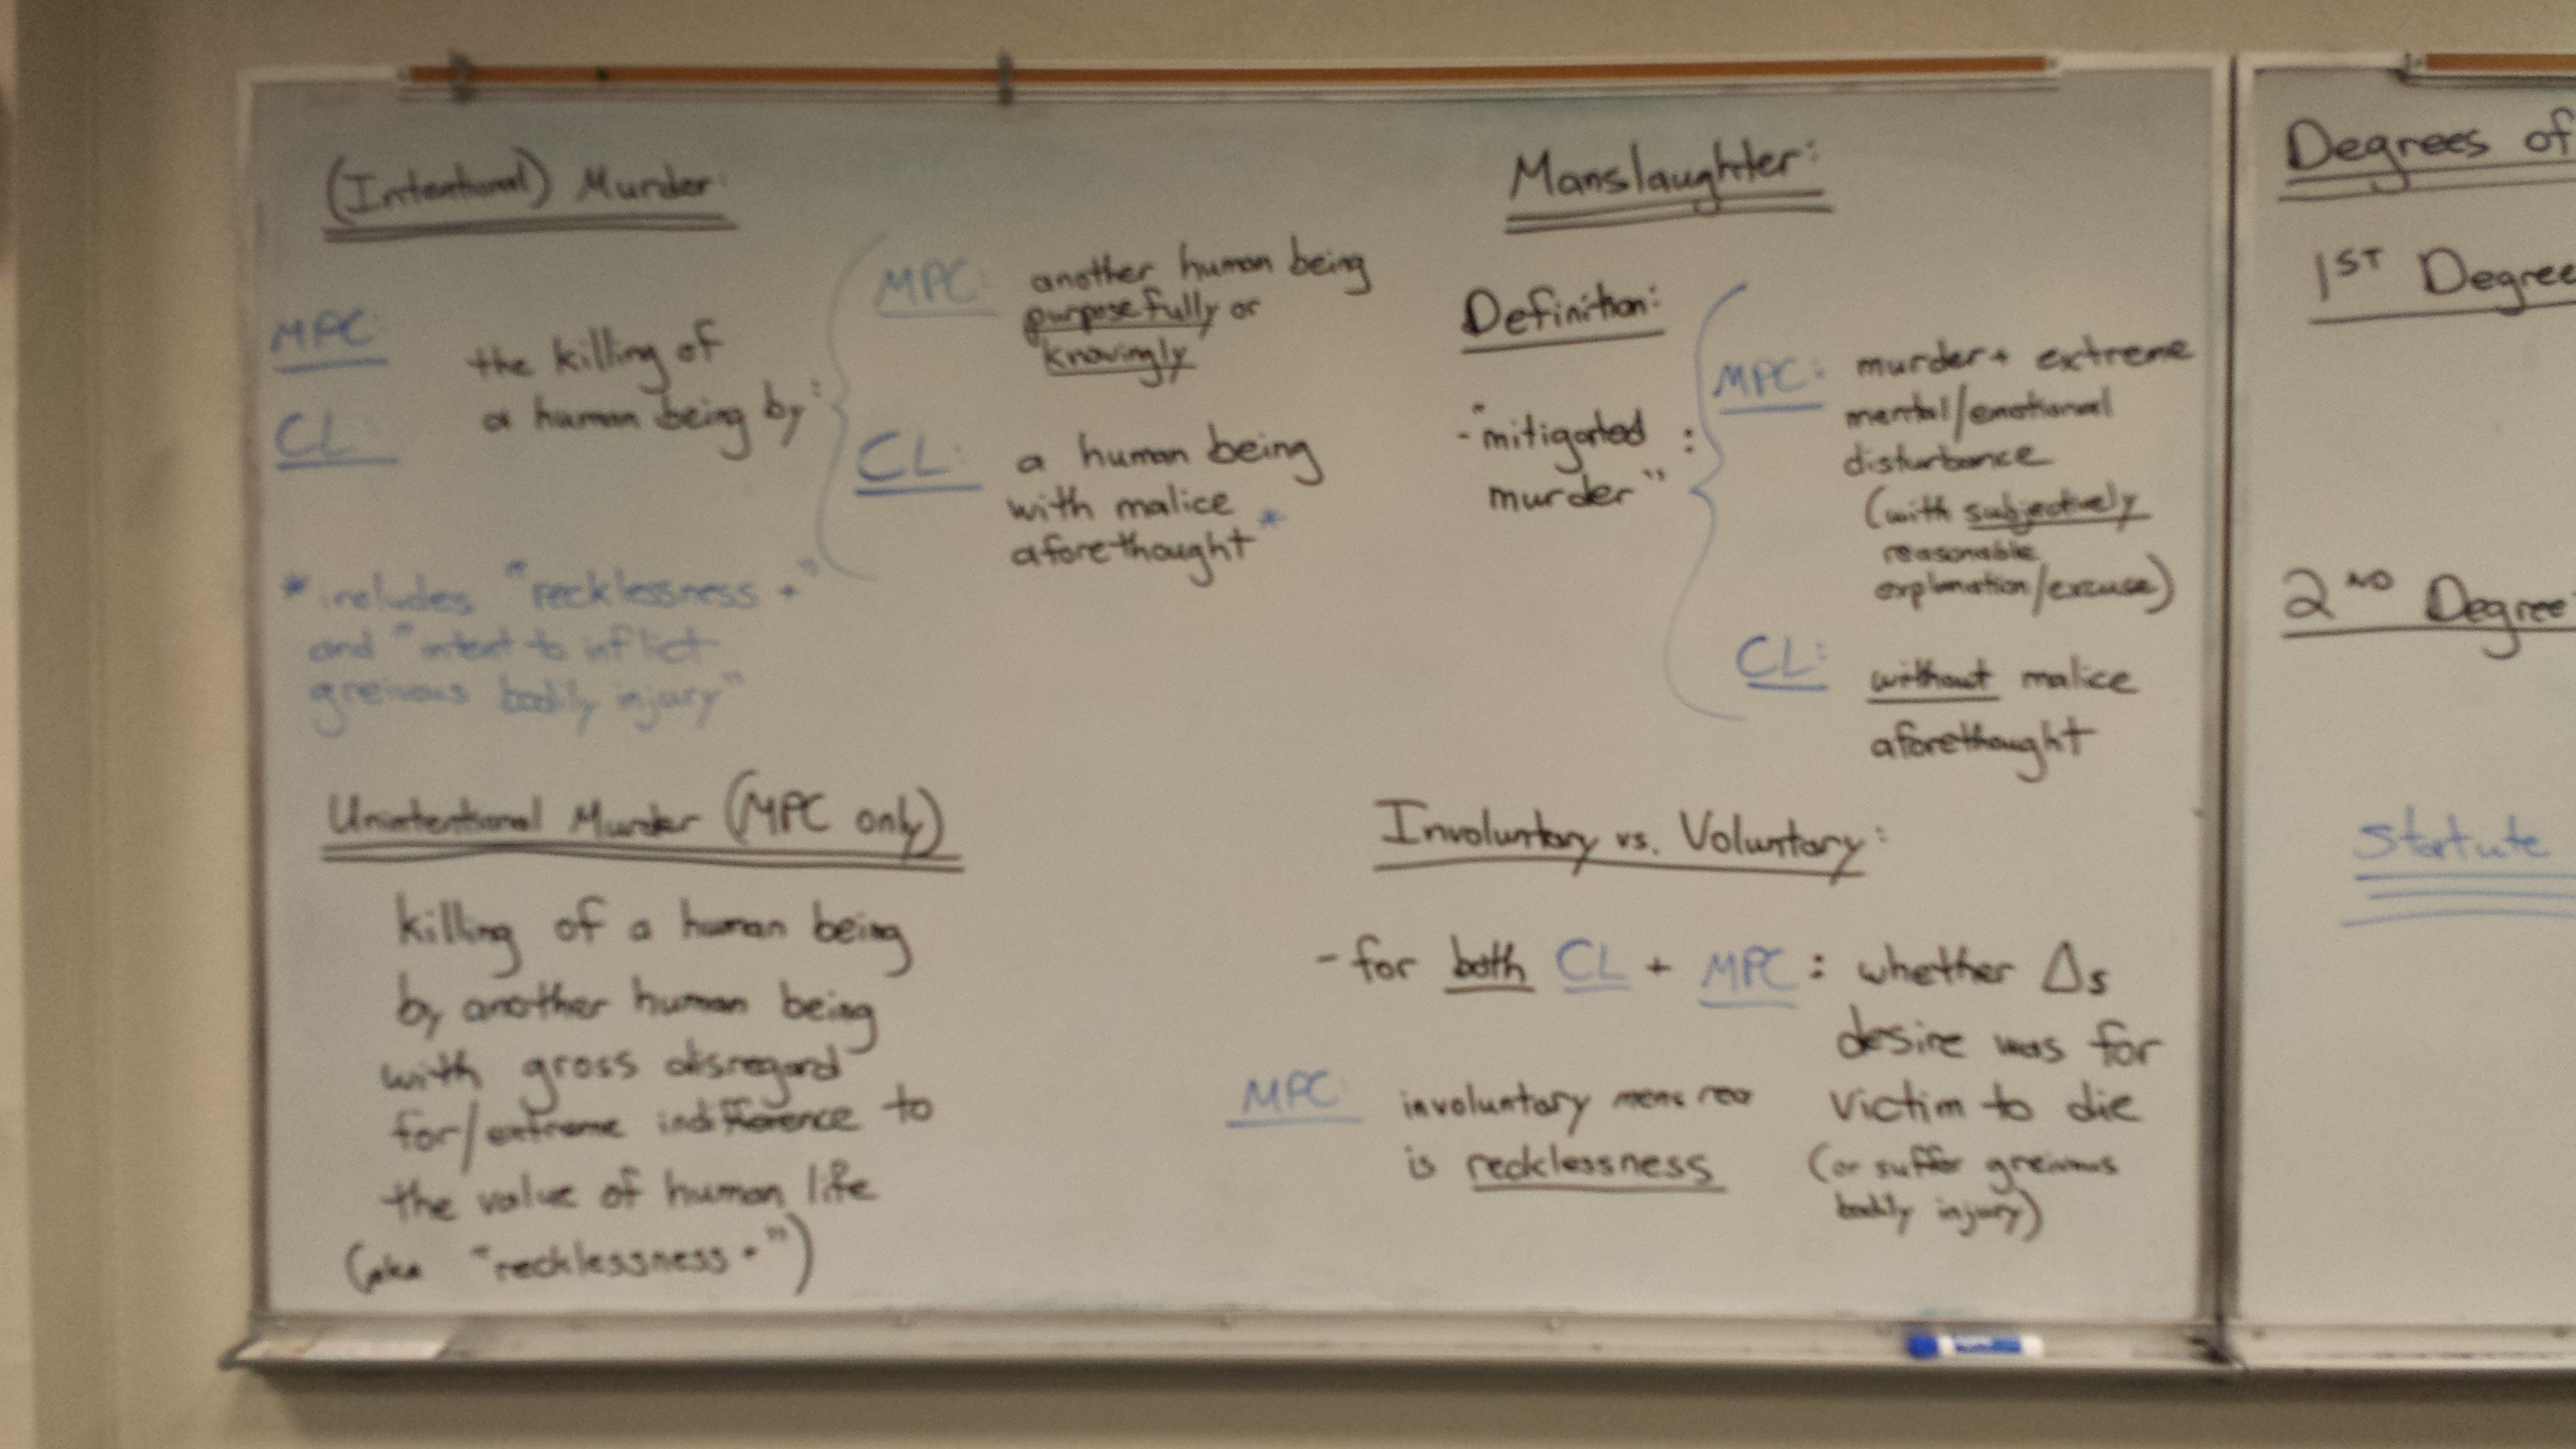 (Intentional) Murder:
MPC:
CL:
the killing of
a human being by:
MPC: another human being
purposefully or
knowingly
CL: a human being
with malice
aforethought*
* includes "recklessness +"
and "intent to inflict
greivous bodily injury"
Unintentional Murder (MPC only)
killing of a human being
by another human being
with gross disregard
for/extreme indifference to
the value of human life
(aka "recklessness +")
Manslaughter:
Definition:
- "mitigated :
murder"
MPC: murder + extreme
mental/emotional
disturbance
(with subjectively
reasonable
explanation/excuse)
CL: without malice
aforethought
Involuntary vs. Voluntary:
- for both CL + MPC: whether Δs
desire was for
victim to die
(or suffer greivous
bodily injury)
MPC: involuntary mens rea
is recklessness
Degrees of
1ST Degree
2ND Degree
Statute